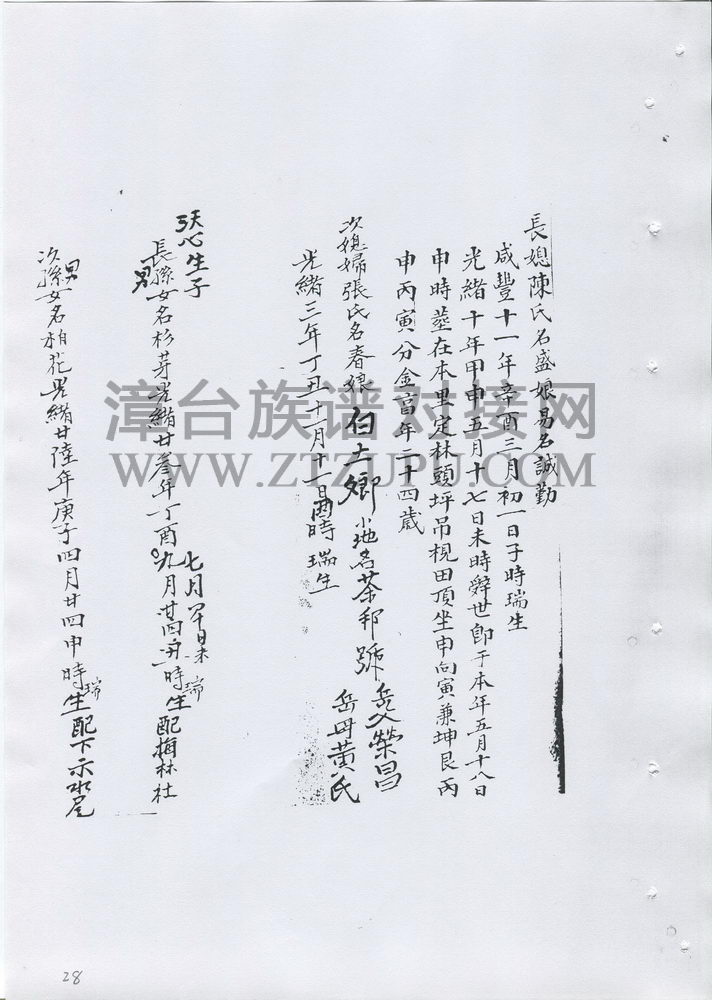 長媳陳氏名盛娘易名誠勤
咸豐十一年辛酉三月初一日子時瑞生
光緒十年甲申五月十七日未時辭世即于本年五月十八日
申時塟在本里定林頭坪吊梘田頂坐申向寅兼坤艮丙
申丙寅分金富年二十四歲
次媳婦張氏名春娘 白土鄉 小地名茶邨 號 岳父榮昌
岳母黄氏
光緒三年丁丑十一月十一日酉時 瑞生
天心生子
長孫女名杉芽光緒廿叁年丁酉 七月
男
九月廿四丑時瑞生配梅林杜
次孫女名柏花光緒廿陸年庚子四月廿四申時瑞生配下示水尾
男
漳台族谱对接网
WWW.ZTZUPU.COM
28